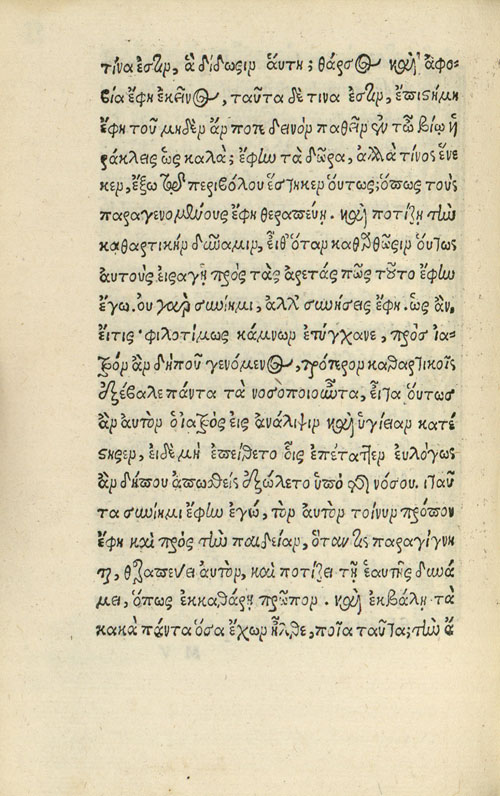 τίνα ἐστιν, ἃ δίδωσιν ἅυτη; θάρσος καὶ ἀφο-
βία ἔφη ἐκεῖνος, ταῦτα δὲ τινα ἐστιν, ἔπιστήμη
ἔφη τοῦ μηδὲν ἄν ποτε δεινὸν παθεῖν ἐν τῷ βίῳ ἡ
ράκλεις ὡς καλὰ; ἔφlω τὰ δῶρα, ἀλλὰ τίνος ἕνε
κεν, ἔξω τοῦ περιβόλου ἕστηκεν ὅυτως; ὅπως τοὺς
παραγενομένους ἔφη θεραπεύῃ. καὶ ποτίζῃ τὴν
καθαρτικὴν δύναμιν, εἶθ' ὅταν καθαρθῶσιν ὅυτως
ἀυτοὺς εἰσαγῃ πρὸς τὰς ἀρετάς πῶς τοῦτο ἔφην
ἔγω. ου γὰρ συνίημι, ἀλλὰ συνήσεις ἔφη. ὡς ἄν,
εἴτις φιλοτίμως κάμνων ἐτύγχανε, πρὸς ἰα-
τρὸν ἂν δήπου γενόμενος, πρότερον καθαρτικοῖς
ἐξέβαλε πάντα τὰ νοσοποιοῦντα, εἶτα ὅυτως
ἂν αυτὸν ὁ ἰατρὸς εἰς ἀνάληψιν καὶ ὑγίειαν κατέ
στησεν, ἐι δὲ μὴ ἐπείθετο ὅις ἐπέταττεν ευλόγως
ἂν δήπου ἀπωσθεὶς ἐξώλετο ὑπὸ τῆς νόσου. ταῦ
τα συνίημι ἔφην ἐγώ, τὸν ἀυτὸν τοίνυν τρόπον
ἔφη καὶ πρὸς τὴν παιδείαν, ὅταν τις παραγίγνη
ται, θεραπεύει ἀυτὸν, καὶ ποτίζει τῇ ἑαυτῆς δυνά
μει, ὅπως ἐκκαθάρῃ πρῶτον. καὶ ἐκβάλῃ τὰ
κακὰ πάντα ὅσα ἔχων ἦλθε, ποῖα ταῦτα; τὴν ἄ